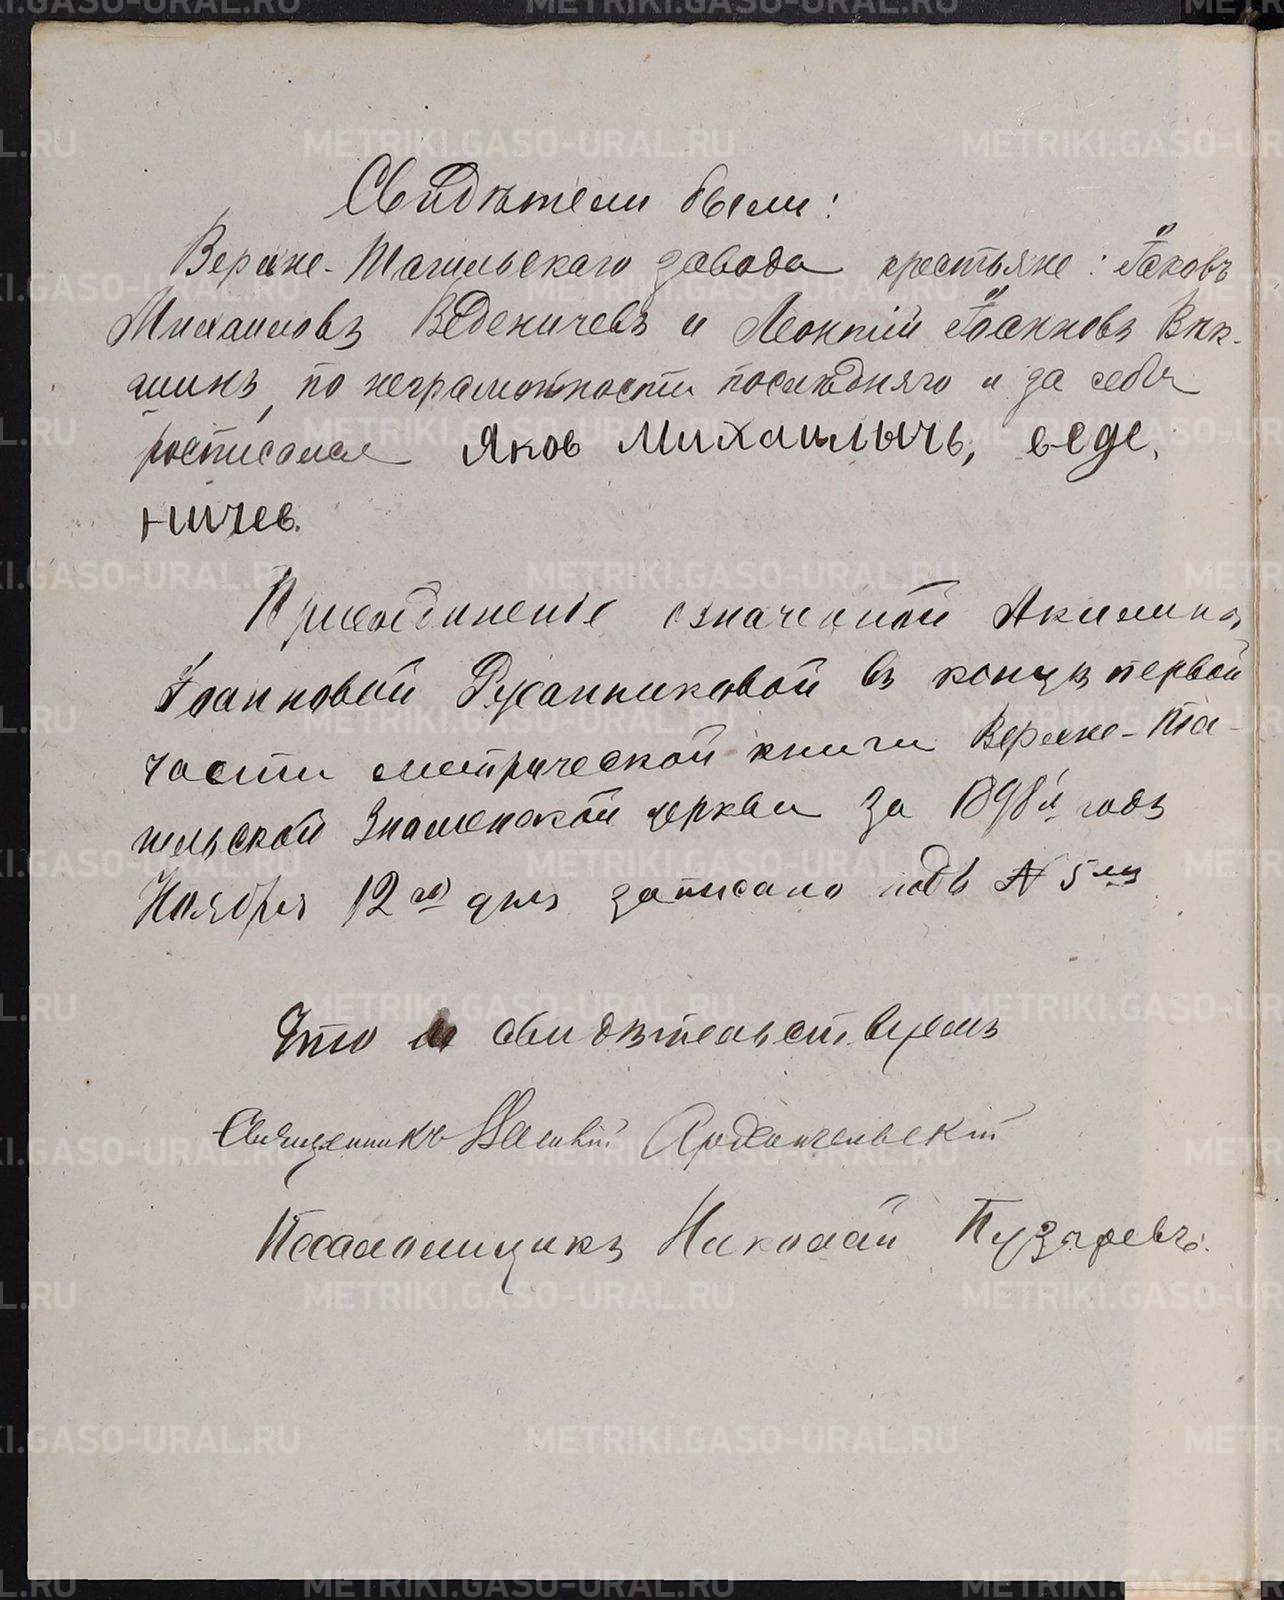 Свидѣтели были:
Верхне-Тагильскаго завода крестьяне: Іаковъ
Михаиловъ Веденичевъ и Леонтій Іоанновъ
по неграмотности послѣдняго и за себя
росписался Яков Михаилычь, веде,
ничев.
Присоединеніе означенной Акилины
Іоанновой Русанниковой въ концѣ первой
части метрической книги Верхне-Та-
гильской Знаменской церкви за 1898й годъ
Ноября 12го дня записано подъ № 5мъ
Что и свидѣтельствуемъ
Священникъ Василій Архангельскій
Псаломщикъ Николай Пузыревъ.
METRIKI.GASO-URAL.RU